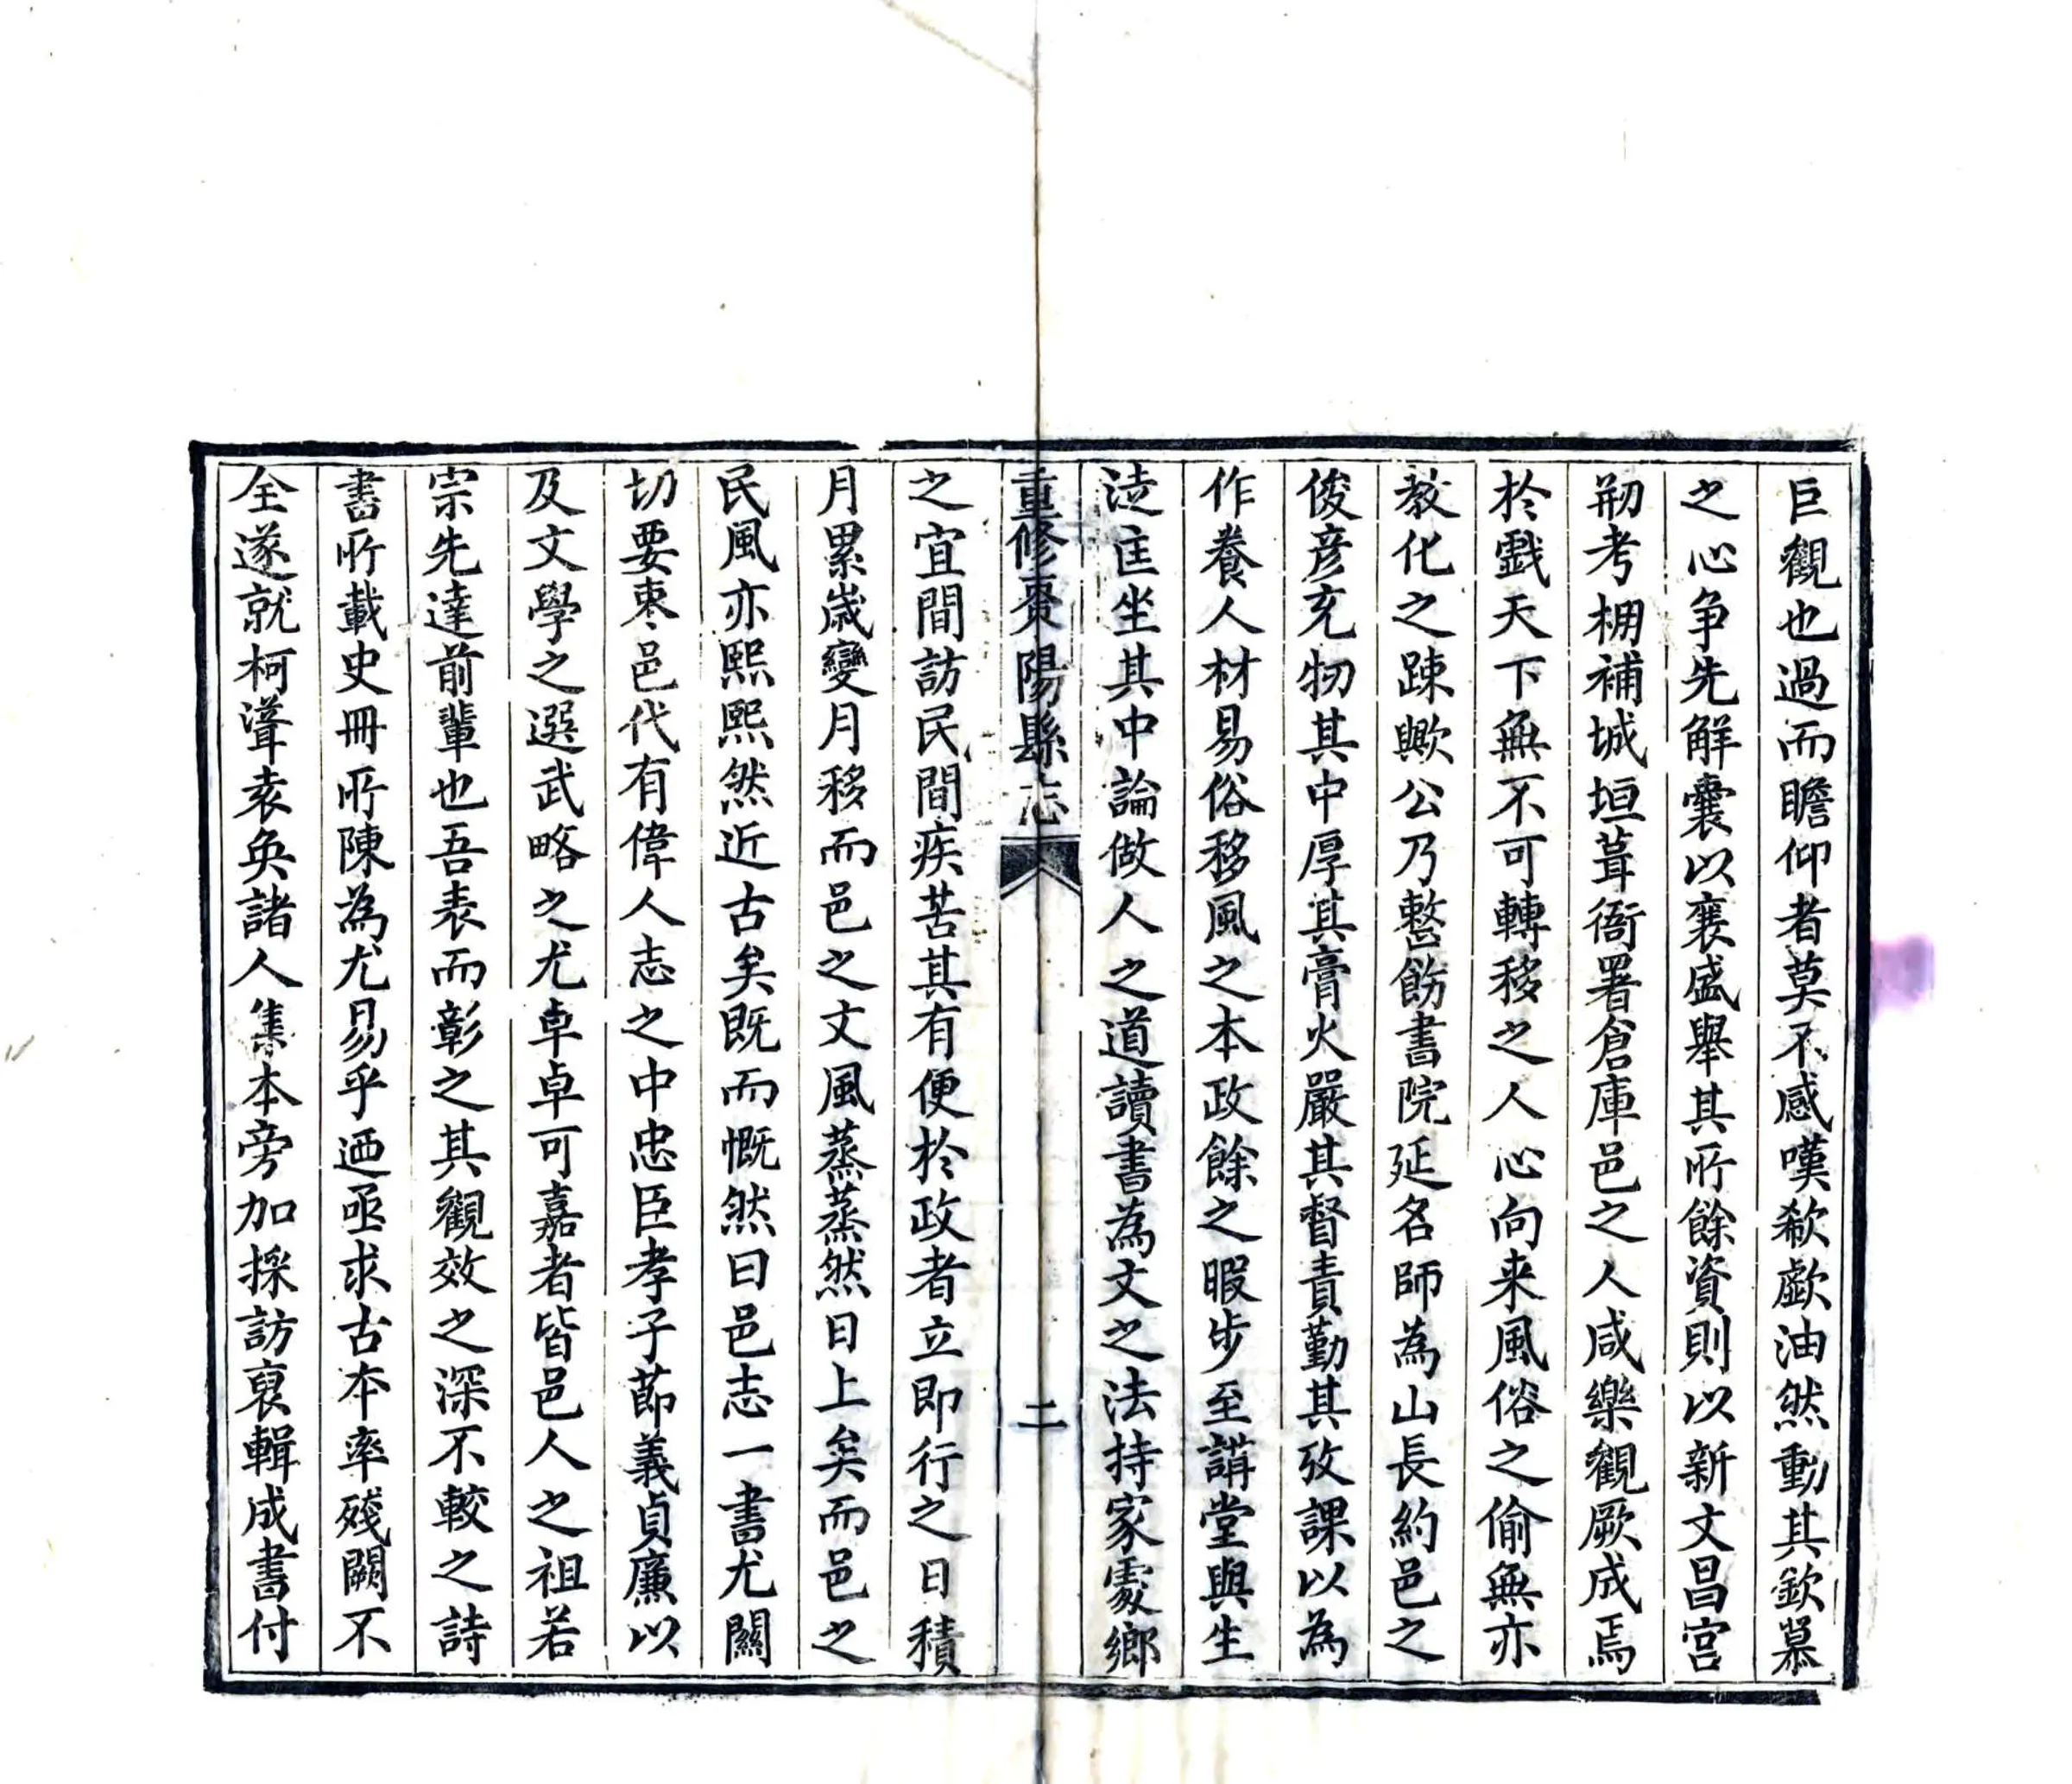 巨觀也過而瞻仰者莫不感嘆欷歔油然動其欽慕
之心争先解囊以襄盛舉其所餘資則以新文昌宫
剏考棚補城垣葺衙署倉庫邑之人咸樂觀厥成焉
於戲天下無不可轉移之人心向来風俗之偷無亦
教化之踈歟公乃整飭書院延名師為山長約邑之
俊彦充牣其中厚其膏火嚴其督責勤其攷課以為
作養人材易俗移風之本政餘之暇步至講堂與生
徒匡坐其中論做人之道讀書為文之法持家處鄉
重修棗陽縣志
二
之宜間訪民間疾苦其有便於政者立即行之日積
月累歲變月移而邑之文風蒸蒸然日上矣而邑之
民風亦熙熙然近古矣既而慨然曰邑志一書尤關
切要枣邑代有偉人志之中忠臣孝子節義貞廉以
及文學之選武略之尤卓卓可嘉者皆邑人之祖若
宗先達前輩也吾表而彰之其觀效之深不較之詩
書所載史冊所陳為尤易乎迺亟求古本率殘闕不
全遂就柯瀣袁奂諸人集本旁加採訪裒輯成書付